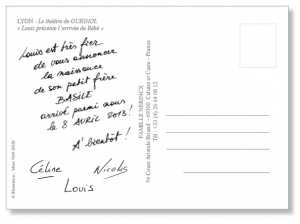 LYON - Le théâtre de GUIGNOL
« Louis présente l'arrivée de Bébé »
Louis est très fier
de vous annoncer
la naissance
de son petit frère
BASILE
arrivé parmi nous
le 8 AVRIL 2013!
A bientôt!
Céline Nicolas
Louis
FAMILLE NERINCX
54 Cours Aristide Briand - 69300 Caluire et Cuire - France